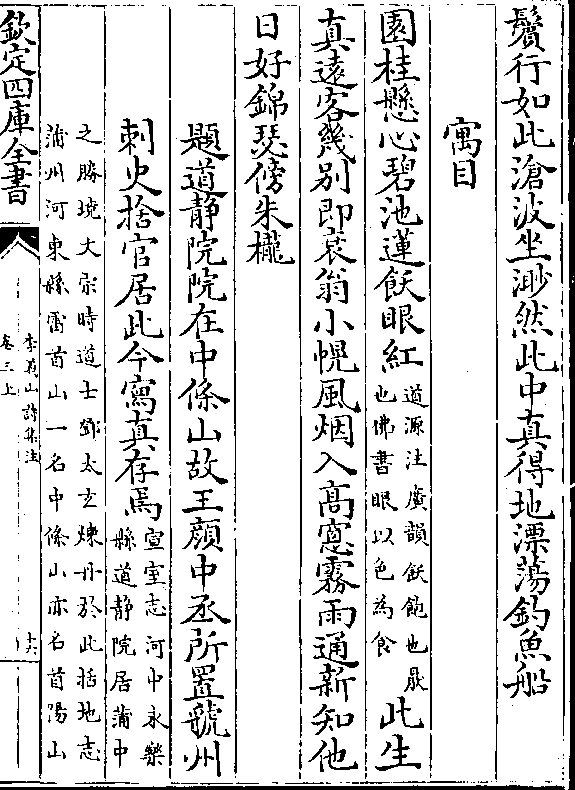 鬢行如此滄波坐渺然此中真得地漂蕩釣魚船
寓目
園桂懸心碧池蓮飫眼紅
道源注廣韻飫飽也厭
也佛書眼以色為食
此生
真遠客幾別即衰翁小幌風烟入高窻霧雨通新知他
日好錦瑟傍朱櫳
題道静院院在中條山故王顏中丞所置虢州
刺史捨官居此今寫真存焉
宣室志河中永樂
縣道静院居蒲中
之勝境文宗時道士鄧太玄煉丹於此括地志
蒲州河東縣雷首山一名中條山亦名首陽山
欽定四庫全書
李義山詩集注
卷三上
十六